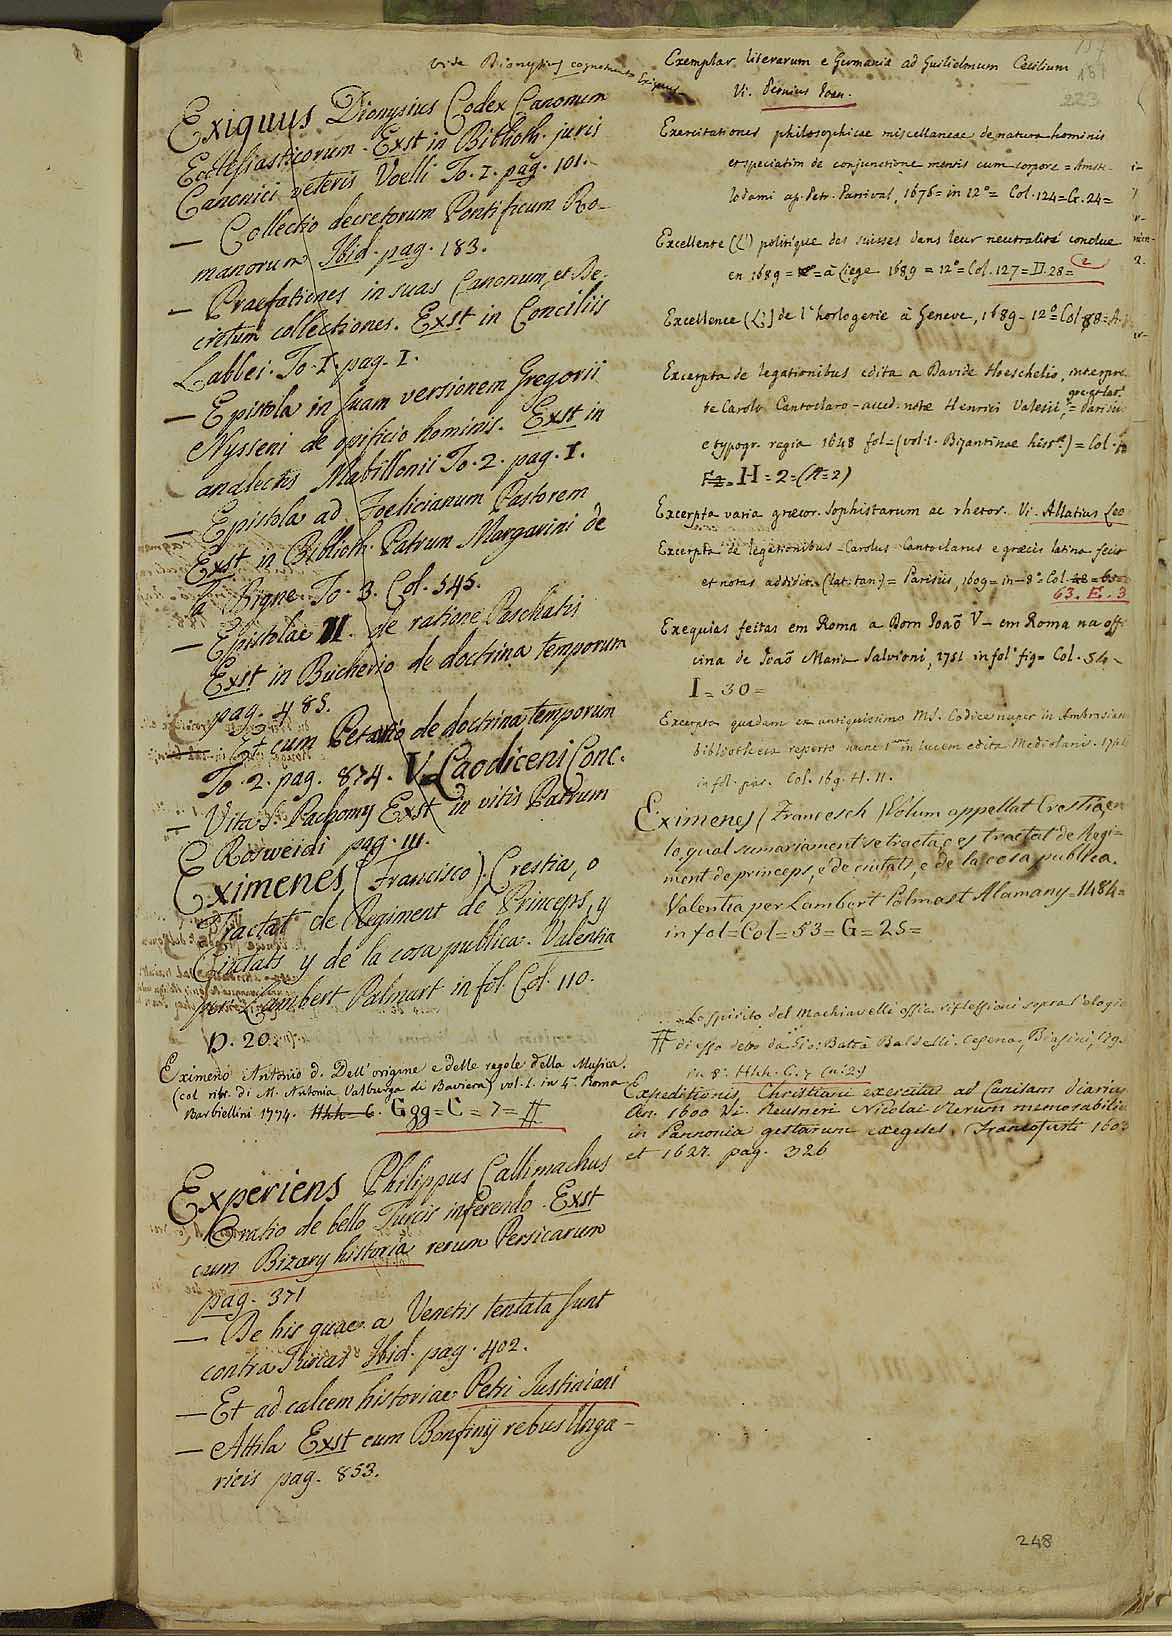 vide Dionysius cognomento Exiguus
Exiguus Dionysius Codex Canonum
Ecclesiasticorum. Exst in Biblioth. juris
Canonici veteris Voelli To. I. pag. 101.
— Collectio decretorum Pontificum Ro-
manorum Ibid. pag. 183.
— Praefationes in suas Canonum, et De-
cretum collectiones. Exst in Conciliis
Labbei. To. I. pag. I.
— Epistola in suam versionem Gregorii
Nysseni de opificio hominis. Exst in
analectis Mabillonii To. 2. pag. I.
— Epistola ad Foelicianum Pastorem
Exst in Biblioth. Patrum Margarini de
la Bigne To. 3. Col. 545.
— Epistolae II. de ratione Paschatis
Exst in Bucherio de doctrina temporum
pag. 485.
— Et cum Petavio de doctrina temporum
To. 2. pag. 874. V. Laodiceni Conc.
— Vita S. Pachomy Exst in vitis Patrum
Rosweidi pag. III.
Eximenes (Francisco). Crestia, o
Tractat de Regiment de Princeps, y
Ciutats y de la cosa publica. Valentia
per Lambert Palmart in fol. Col. 110.
D. 20.
Eximeno Antonio d. Dell' origine e delle regole della Musica.
(col ritr. di M. Antonia Valburga di Baviera) vol. I. in 4° Roma
Barbiellini 1774. Hhh. 6. Ggg = C = 7 = #
Experiens Philippus Callimachus
Oratio de bello Turcis inferendo. Exst
cum Bizary historia rerum Persicarum
pag. 371
— De his quae a Venetis tentata sunt
contra Turcas Ibid. pag. 402.
— Et ad calcem historiae Petri Justiniani
— Attila Exst cum Bonfinij rebus Unga-
ricis pag. 853.
187
223
Exemplar literarum e Germania ad Guilielmum Cecilium
Vi. Pernius Joan.
Exercitationes philosophicae miscellaneae de natura hominis
et speciatim de conjunctione mentis cum corpore = Amste-
lodami ap. Petr. Parrival, 1676 = in 12° = Col. 124 = G. 24 =
Excellente (L') politique des suisses dans leur neutralité conclue
en 1689 = à Liege 1689 = 12° = Col. 127 = D. 28 = 2
Excellence (L') de l'horlogerie à Geneve, 1689 - 12° = Col. 88 = A.
Excerpta de legationibus edita a Davide Hoeschelio, interpre-
te Carolo Cantoclaro - acced. notae Henrici Valesii, = Parisiis
e typogr. regia 1648 fol = (vol. 1. Byzantinae hist.ae) = Col.
H = 2 = (A = 2)
Excerpta varia graecor. Sophistarum ac rhetor. Vi. Allatius Leo
Excerpta de legationibus - Carolus Cantoclarus e graecis latina fecit
et notas addidit. (lat. tan.) = Parisiis, 1609 = in - 8° = Col.
63. E. 3
Exequias feitas em Roma a Dom Joaõ V - em Roma na offi-
cina de Joaõ Maria Salvioni, 1751 in fol° fig = Col. 54 -
I = 30 =
Excerpta quaedam ex antiquissimo MS. Codice nuper in Ambrosian
bibliotheca reperto nunc 1um in lucem edita Mediolani.
in fol. par. Col. 169. H. 11.
Eximenes (Francesch) Volum appellat Crestia, en
lo qual sumariament se tracta, o es tractat de Regi=
ment de princeps, e de ciutats, e de la cosa publica.
Valentia per Lambert Palmart Alamany = 1484 =
in fol = Col = 53 = G = 25 =
Lo Spirito del Machiavelli ossia riflessioni sopra l'elogio
# di esso detto da Gio: Batta Baldelli. Cesena, Biasini,
in 8°. Hhh. C. 7 (n: 2.)
Expeditionis Christiani exercitus ad Canisam diarius
An. 1600 Vi. Reusneri Nicolai Rerum memorabilium
in Pannonia gestarum exegeses. Francofurti 1603
et 1627. pag. 326
248